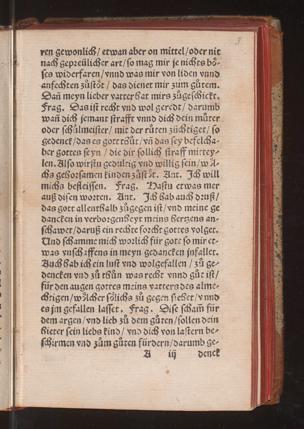 3
ren gewonlich/ etwan aber on mittel/ oder nit
nach gepreülicher art/ so mag mir je nichts bö-
ses widerfaren/ vnnd was mir von liden vnnd
anfechten zůstöt/ das dienet mir zum gůtem.
Dañ meyn lieber vatter hat mirs zůgeschickt.
Frag. Das ist recht vnd wol geredt/ darumb
wañ dich jemant strafft vnnd dich dein můter
oder schůlmeister/ mit der růten züchtiget/ so
gedenck/ das es gott thüt/ vñ das sey befelcha-
ber gottes seyn/ die dir sollich straff mittey-
len. Also würstu gedultig vnd willig sein/ wŏl-
chs gehorsamen kinden zůstöt. Ant. Ich will
michs befleissen. Frag. Hastu etwas mer
auß disen worten. Ant. Ich hab auch druß/
das gott allenthalb zůgegen ist/ vnd meine ge
dancken in verborgenheyt meins hertzens an-
schawet/ daruß ein rechte forcht gottes volget.
Vnd schamme mich worlich für gott so mir et-
was vnschaffens in meyn gedancken jnfallet.
Auch hab ich ein lust vnd wolgefallen/ zů ge-
dencken vnd zů thůn was recht vnnd gůt ist/
für den augen gottes meins vatters des alme-
chtigen/ wŏlcher sŏlichs zů gegen sichet/ vnnd
es jm gefallen lasset. Frag. Dise scham für
dem argen/ vnd lieb zů dem gůten/ sollen dein
hieter sein liebs kind/ vnd dich von lastern be-
schirmen vnd zům gůten fürdern/ darumb ge-
A iij denck